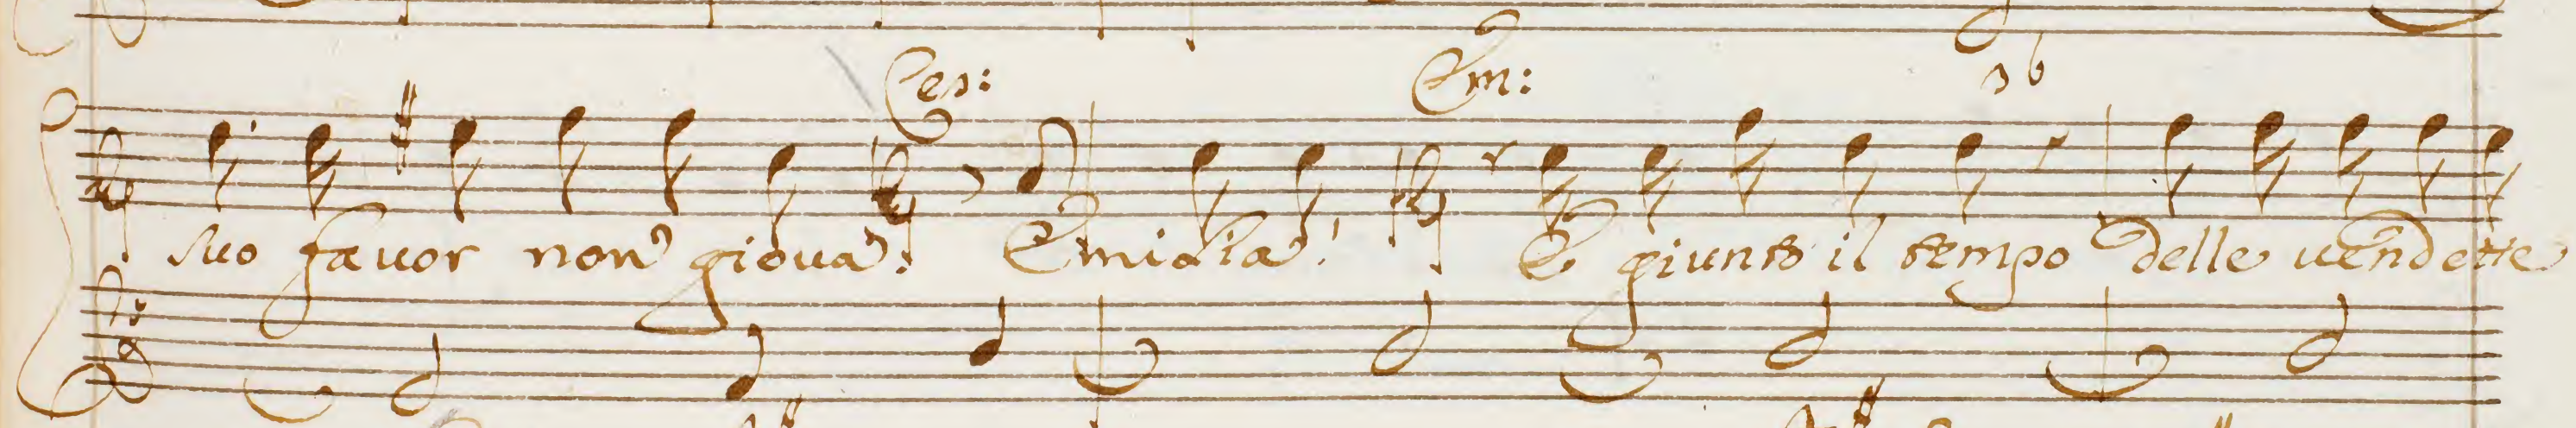 Ces: Em: 5b
suo fauor non gioua. Emilia! E giunto il tempo delle uendette